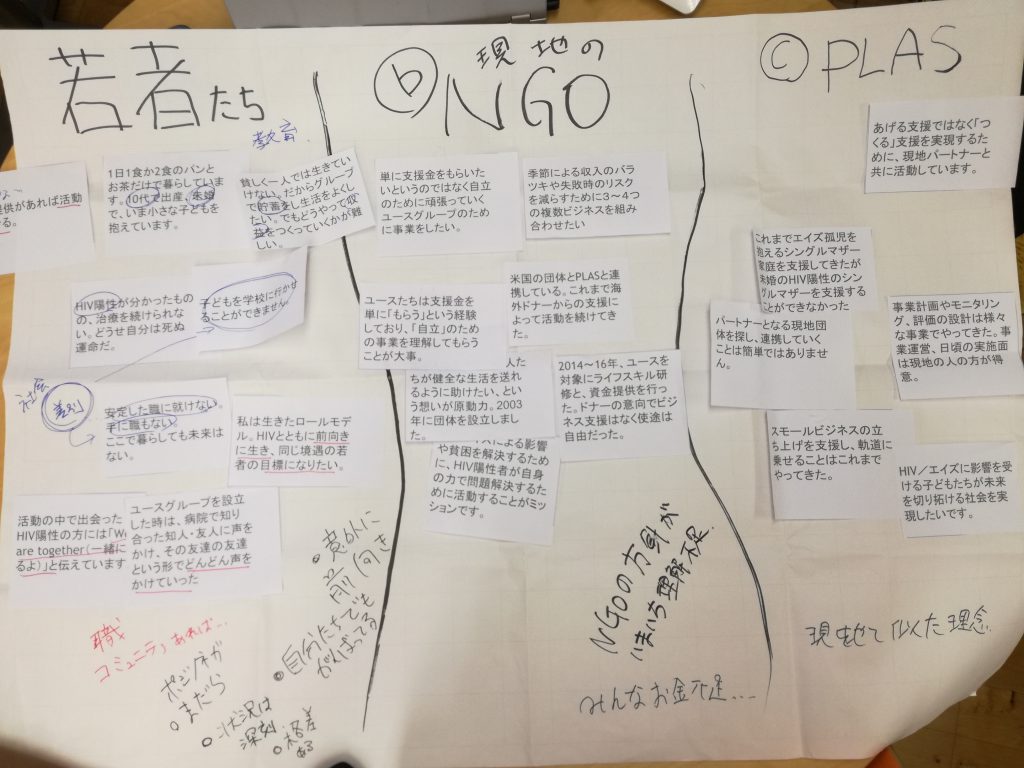 若者たち
ⓑ 現地の
NGO
ⓒ PLAS
教育
提供があれば活動
る。
1日1食か2食のパンと
お茶だけで暮らしていま
す。10代で出産、未婚
で、いま小さな子どもを
抱えています。
貧しく一人では生きてい
けない。だからグループ
で貯蓄をし生活をよくし
たい。でもどうやって収
益をつくっていくかが難
しい。
HIV陽性が分かったもの
の、治療を続けられな
い。どうせ自分は死ぬ
運命だ。
子どもを学校に行かせ
ることができません。
差別
安定した職に就けない。
手に職もない。
ここで暮らしても未来は
ない。
私は生きたロールモデ
ル。HIVとともに前向き
に生き、同じ境遇の若
者の目標になりたい。
活動の中で出会った
HIV陽性の方には「We
are together(一緒に
るよ)」と伝えています
ユースグループを設立
した時は、病院で知り
合った知人・友人に声を
かけ、その友達の友達
という形でどんどん声を
かけていった
職
コミュニティあれば…
ポジ/ネガ
まだら
状況は
深刻
格差
ある
意外に
前向き
自分たちでも
がんばってる
単に支援金をもらいた
いというのではなく自立
のために頑張っていく
ユースグループのため
に事業をしたい。
季節による収入のバラ
ツキや失敗時のリスク
を減らすために3～4つ
の複数ビジネスを組み
合わせたい
ユースたちは支援金を
単に「もらう」という経験
しており、「自立」のため
の事業を理解してもらう
ことが大事。
米国の団体とPLASと連
携している。これまで海
外ドナーからの支援に
よって活動を続けてきた。
人た
ちが健全な生活を送れ
るように助けたい、とい
う想いが原動力。2003
年に団体を設立しまし
た。
2014～16年、ユースを
対象にライフスキル研
修と、資金提供を行っ
た。ドナーの意向でビジ
ネス支援はなく使途は
自由だった。
イズによる影響
や貧困を解決するため
に、HIV陽性者が自身
の力で問題解決するた
めに活動することがミッ
ションです。
NGOの方針が
いまいち理解不足
みんなお金不足…
あげる支援ではなく「つ
くる」支援を実現するた
めに、現地パートナーと
共に活動しています。
これまでエイズ孤児を
抱えるシングルマザー
家庭を支援してきたが
未婚のHIV陽性のシン
グルマザーを支援する
ことができなかった
パートナーとなる現地団
体を探し、連携していく
ことは簡単ではありませ
ん。
事業計画やモニタリン
グ、評価の設計は様々
な事業でやってきた。事
業運営、日頃の実施面
は現地の人の方が得
意。
スモールビジネスの立
ち上げを支援し、軌道に
乗せることはこれまで
やってきた。
HIV／エイズに影響を受
ける子どもたちが未来
を切り拓ける社会を実
現したいです。
現地と似た理念